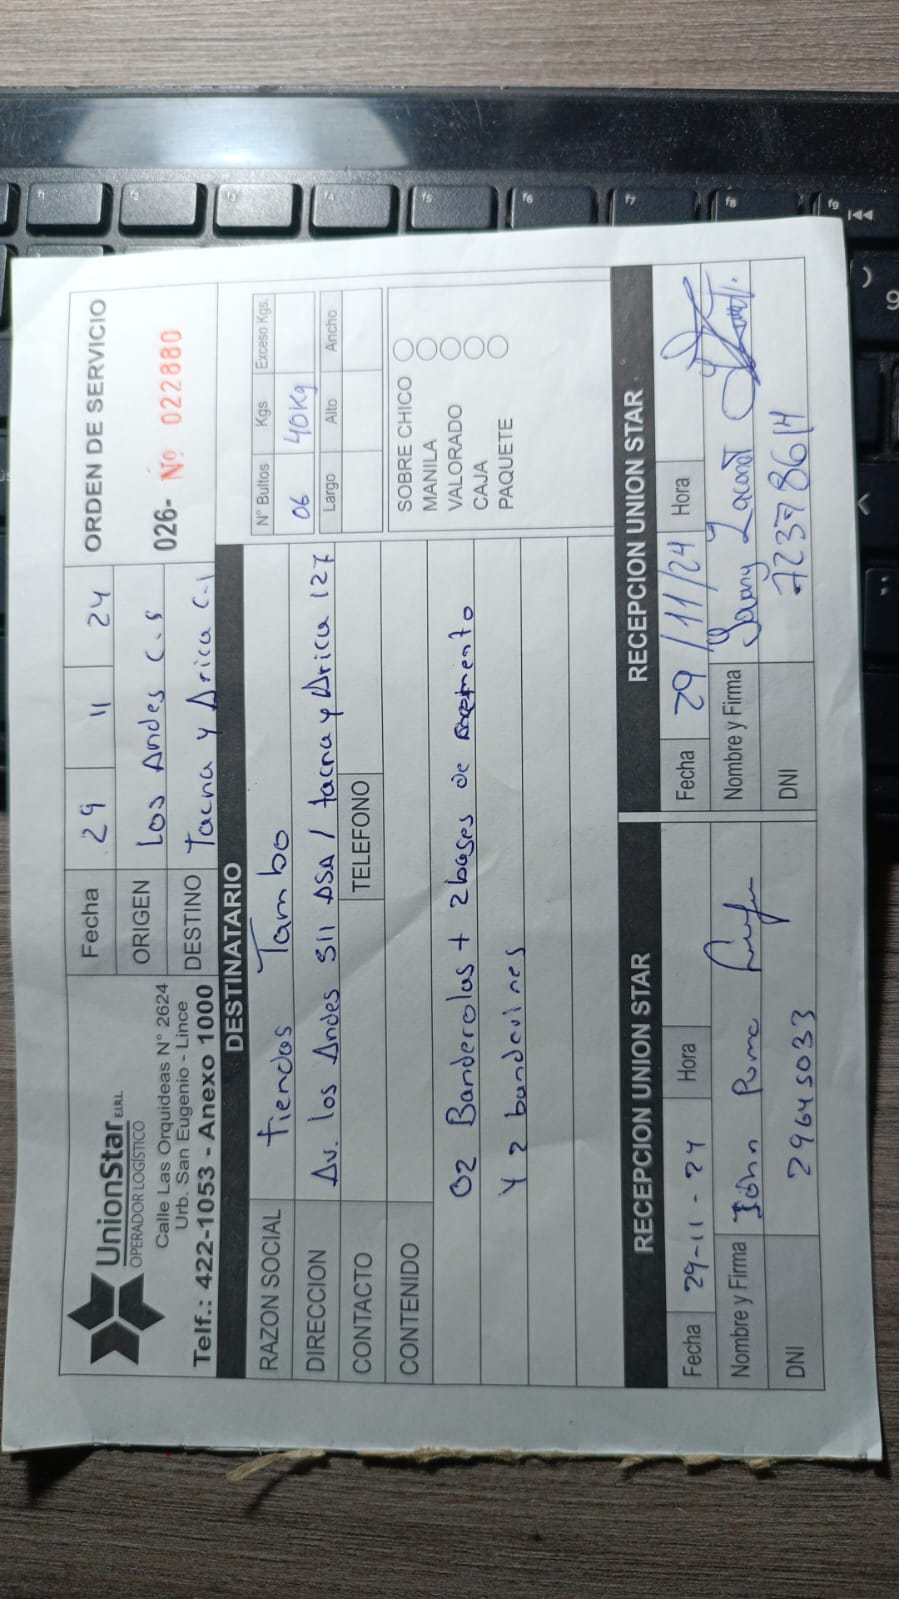 UnionStar E.I.R.L.
OPERADOR LOGÍSTICO
Calle Las Orquideas N° 2624
Urb. San Eugenio - Lince
Telf.: 422-1053 - Anexo 1000
Fecha 29 11 24
ORIGEN Los Andes C.S
DESTINO Tacna y Arica C.I
ORDEN DE SERVICIO
026- Nº 022880
DESTINATARIO
RAZON SOCIAL tiendas Tambo
DIRECCION Av. los Andes 511 DSA / tacna y Arica 127
CONTACTO TELEFONO
CONTENIDO
02 Banderolas + 2 bases de
y 2 banderines
N° Bultos Kgs Exceso Kgs.
06 40Kg
Largo Alto Ancho
SOBRE CHICO
MANILA
VALORADO
CAJA
PAQUETE
RECEPCION UNION STAR
Fecha 29-11-24 Hora
Nombre y Firma John Puma
DNI 29645033
RECEPCION UNION STAR
Fecha 29/11/24 Hora
Nombre y Firma
DNI 72378614
f1 f2 f3 f4 f5 f6 f7 f8 f9
)
9